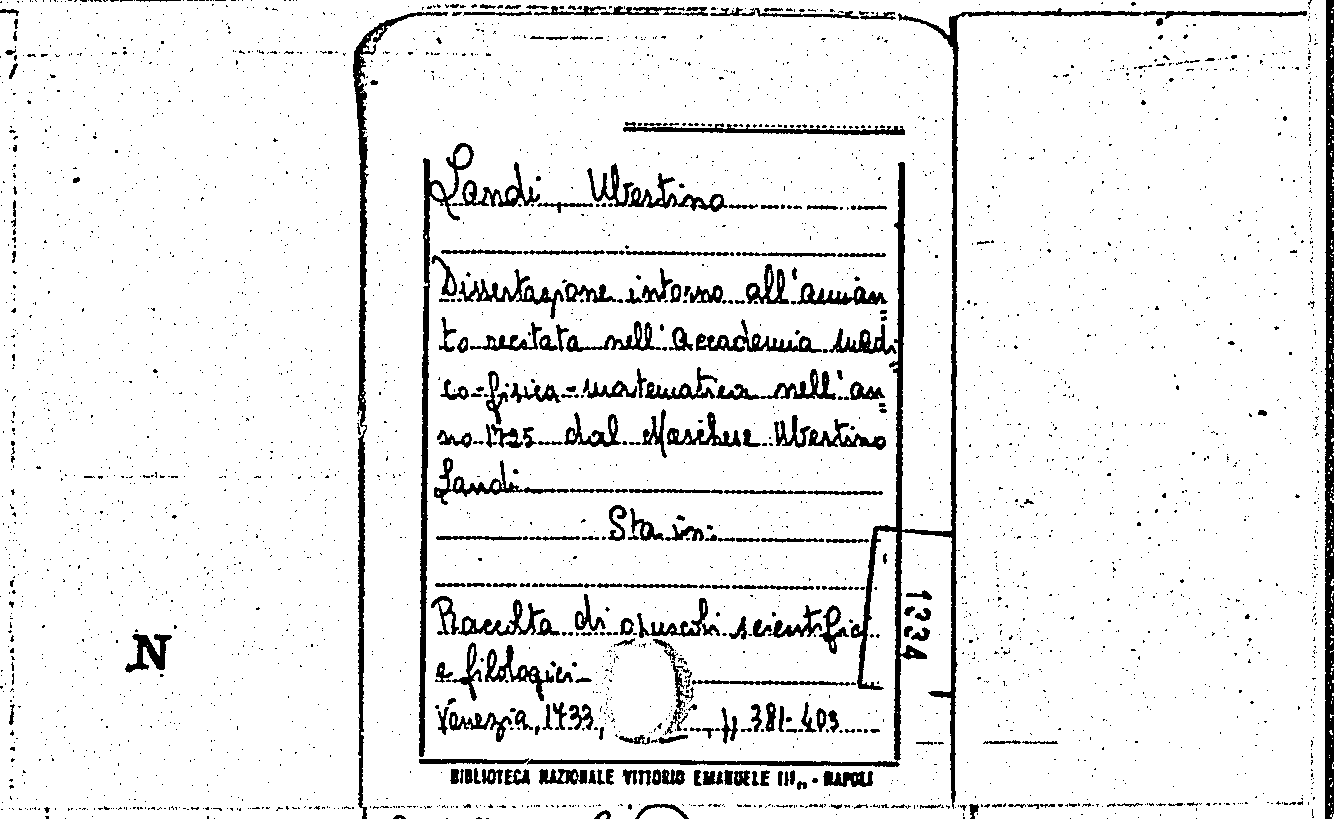 Landi, Ubertino
Dissertazione intorno all'amian
to recitata nell'Accademia medi
co-fisica-matematica nell'an
no 1725 dal Marchese Ubertino
Landi
Sta in:
Raccolta di opuscoli scientifici
e filologici
Venezia, 1733, , pp 381-403
BIBLIOTECA NAZIONALE VITTORIO EMANUELE III,, - NAPOLI
1334
N